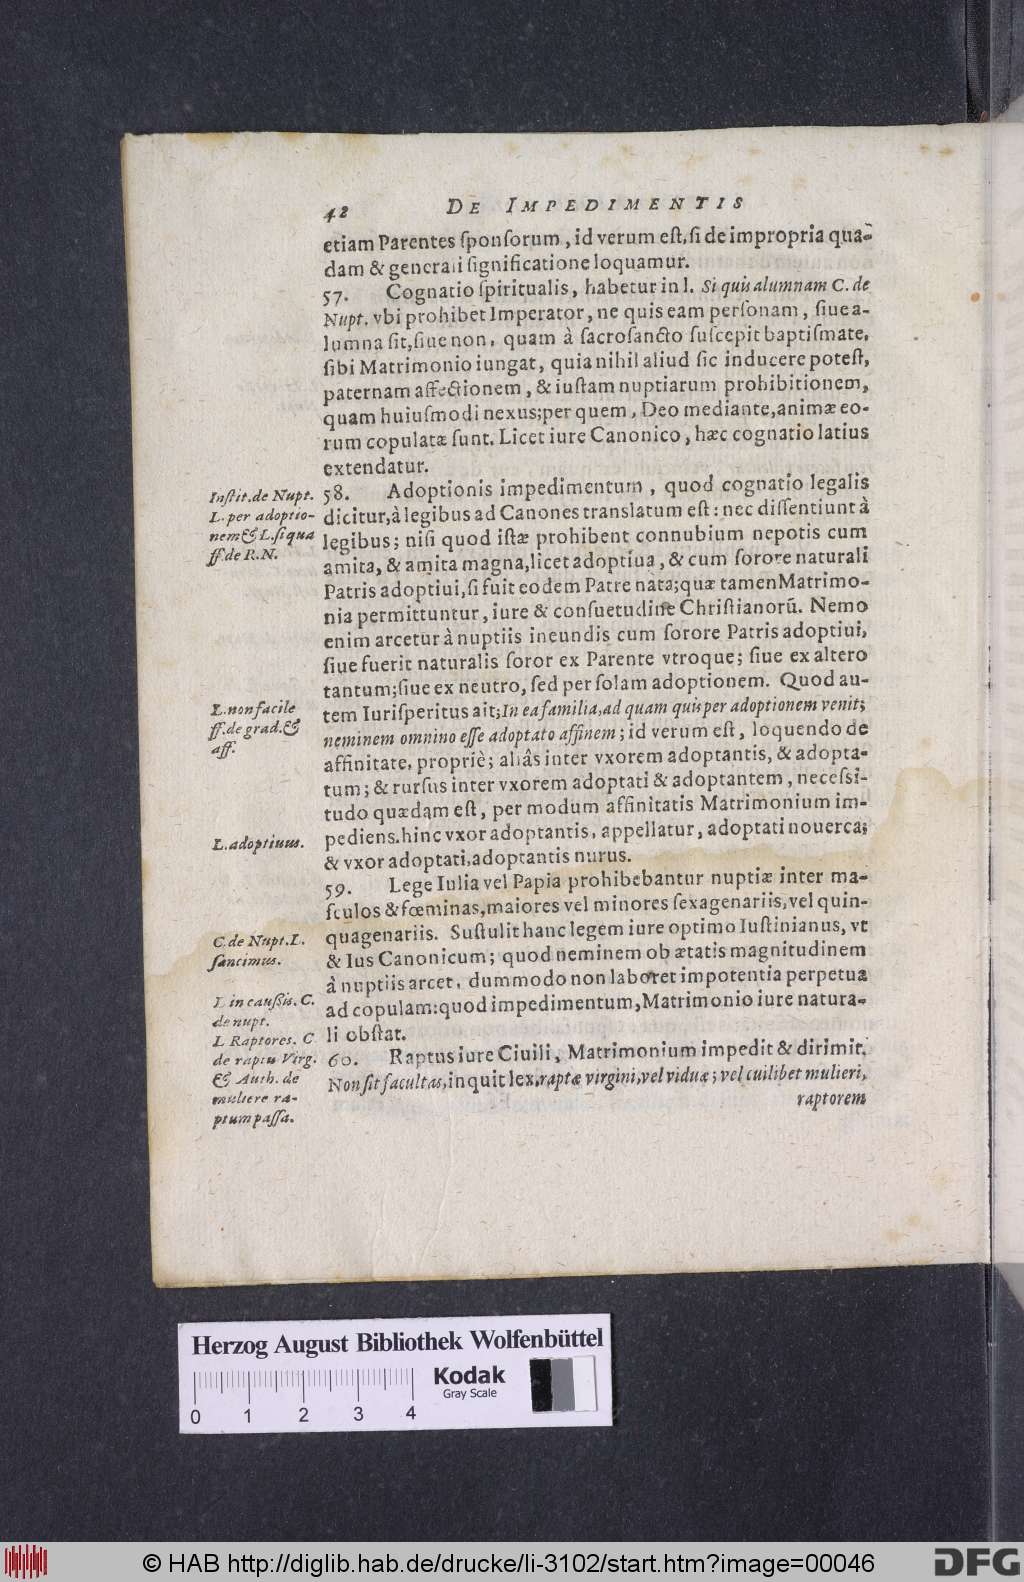 42 DE IMPEDIMENTIS
etiam Parentes ſponſorum, id verum eſt, ſi de impropria qua-
dam & generali ſignificatione loquamur.
57. Cognatio ſpiritualis, habetur in l. Si quis alumnam C. de
Nupt. vbi prohibet Imperator, ne quis eam perſonam, ſiue a-
lumna ſit, ſiue non, quam à ſacroſancto ſuſcepit baptiſmate,
ſibi Matrimonio iungat, quia nihil aliud ſic inducere poteſt,
paternam affectionem, & iuſtam nuptiarum prohibitionem,
quam huiuſmodi nexus; per quem, Deo mediante, animæ eo-
rum copulatæ ſunt. Licet iure Canonico, hæc cognatio latius
extendatur.
58. Adoptionis impedimentum, quod cognatio legalis
dicitur, à legibus ad Canones translatum eſt: nec diſſentiunt à
legibus; niſi quod iſtæ prohibent connubium nepotis cum
amita, & amita magna, licet adoptiua, & cum ſorore naturali
Patris adoptiui, ſi fuit eodem Patre nata; quæ tamen Matrimo-
nia permittuntur, iure & conſuetudine Chriſtianorũ. Nemo
enim arcetur à nuptiis ineundis cum ſorore Patris adoptiui,
ſiue fuerit naturalis ſoror ex Parente vtroque; ſiue ex altero
tantum; ſiue ex neutro, ſed per ſolam adoptionem. Quod au-
tem Iuriſperitus ait; In ea familia, ad quam quis per adoptionem venit;
neminem omnino eſſe adoptato affinem; id verum eſt, loquendo de
affinitate, propriè; aliâs inter vxorem adoptantis, & adopta-
tum; & rurſus inter vxorem adoptati & adoptantem, neceſſi-
tudo quædam eſt, per modum affinitatis Matrimonium im-
pediens. hinc vxor adoptantis, appellatur, adoptati nouerca;
& vxor adoptati, adoptantis nurus.
59. Lege Iulia vel Papia prohibebantur nuptiæ inter ma-
ſculos & fœminas, maiores vel minores ſexagenariis, vel quin-
quagenariis. Suſtulit hanc legem iure optimo Iuſtinianus, vt
& Ius Canonicum; quod neminem ob ætatis magnitudinem
à nuptiis arcet, dummodo non laboret impotentia perpetua
ad copulam: quod impedimentum, Matrimonio iure natura-
li obſtat.
60. Raptus iure Ciuili, Matrimonium impedit & dirimit.
Non ſit facultas, inquit lex, raptæ virgini, vel viduæ; vel cuilibet mulieri,
raptorem
Inſtit. de Nupt.
L. per adoptio-
nem & L. ſi qua
ff. de R. N.
L. non facile
ff. de grad. &
aff.
L. adoptiuus.
C. de Nupt. L.
ſancimus.
L in cauſſis. C.
de nupt.
L Raptores. C
de raptu Virg.
& Auth. de
muliere ra-
ptum paſſa.
Herzog August Bibliothek Wolfenbüttel
Kodak
Gray Scale
0 1 2 3 4
© HAB http://diglib.hab.de/drucke/li-3102/start.htm?image=00046
DFG